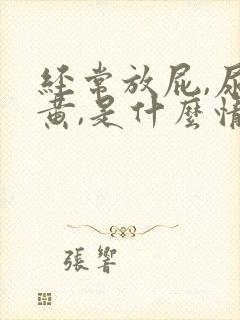 經常放屁,尿
黃,是什麼情
張響